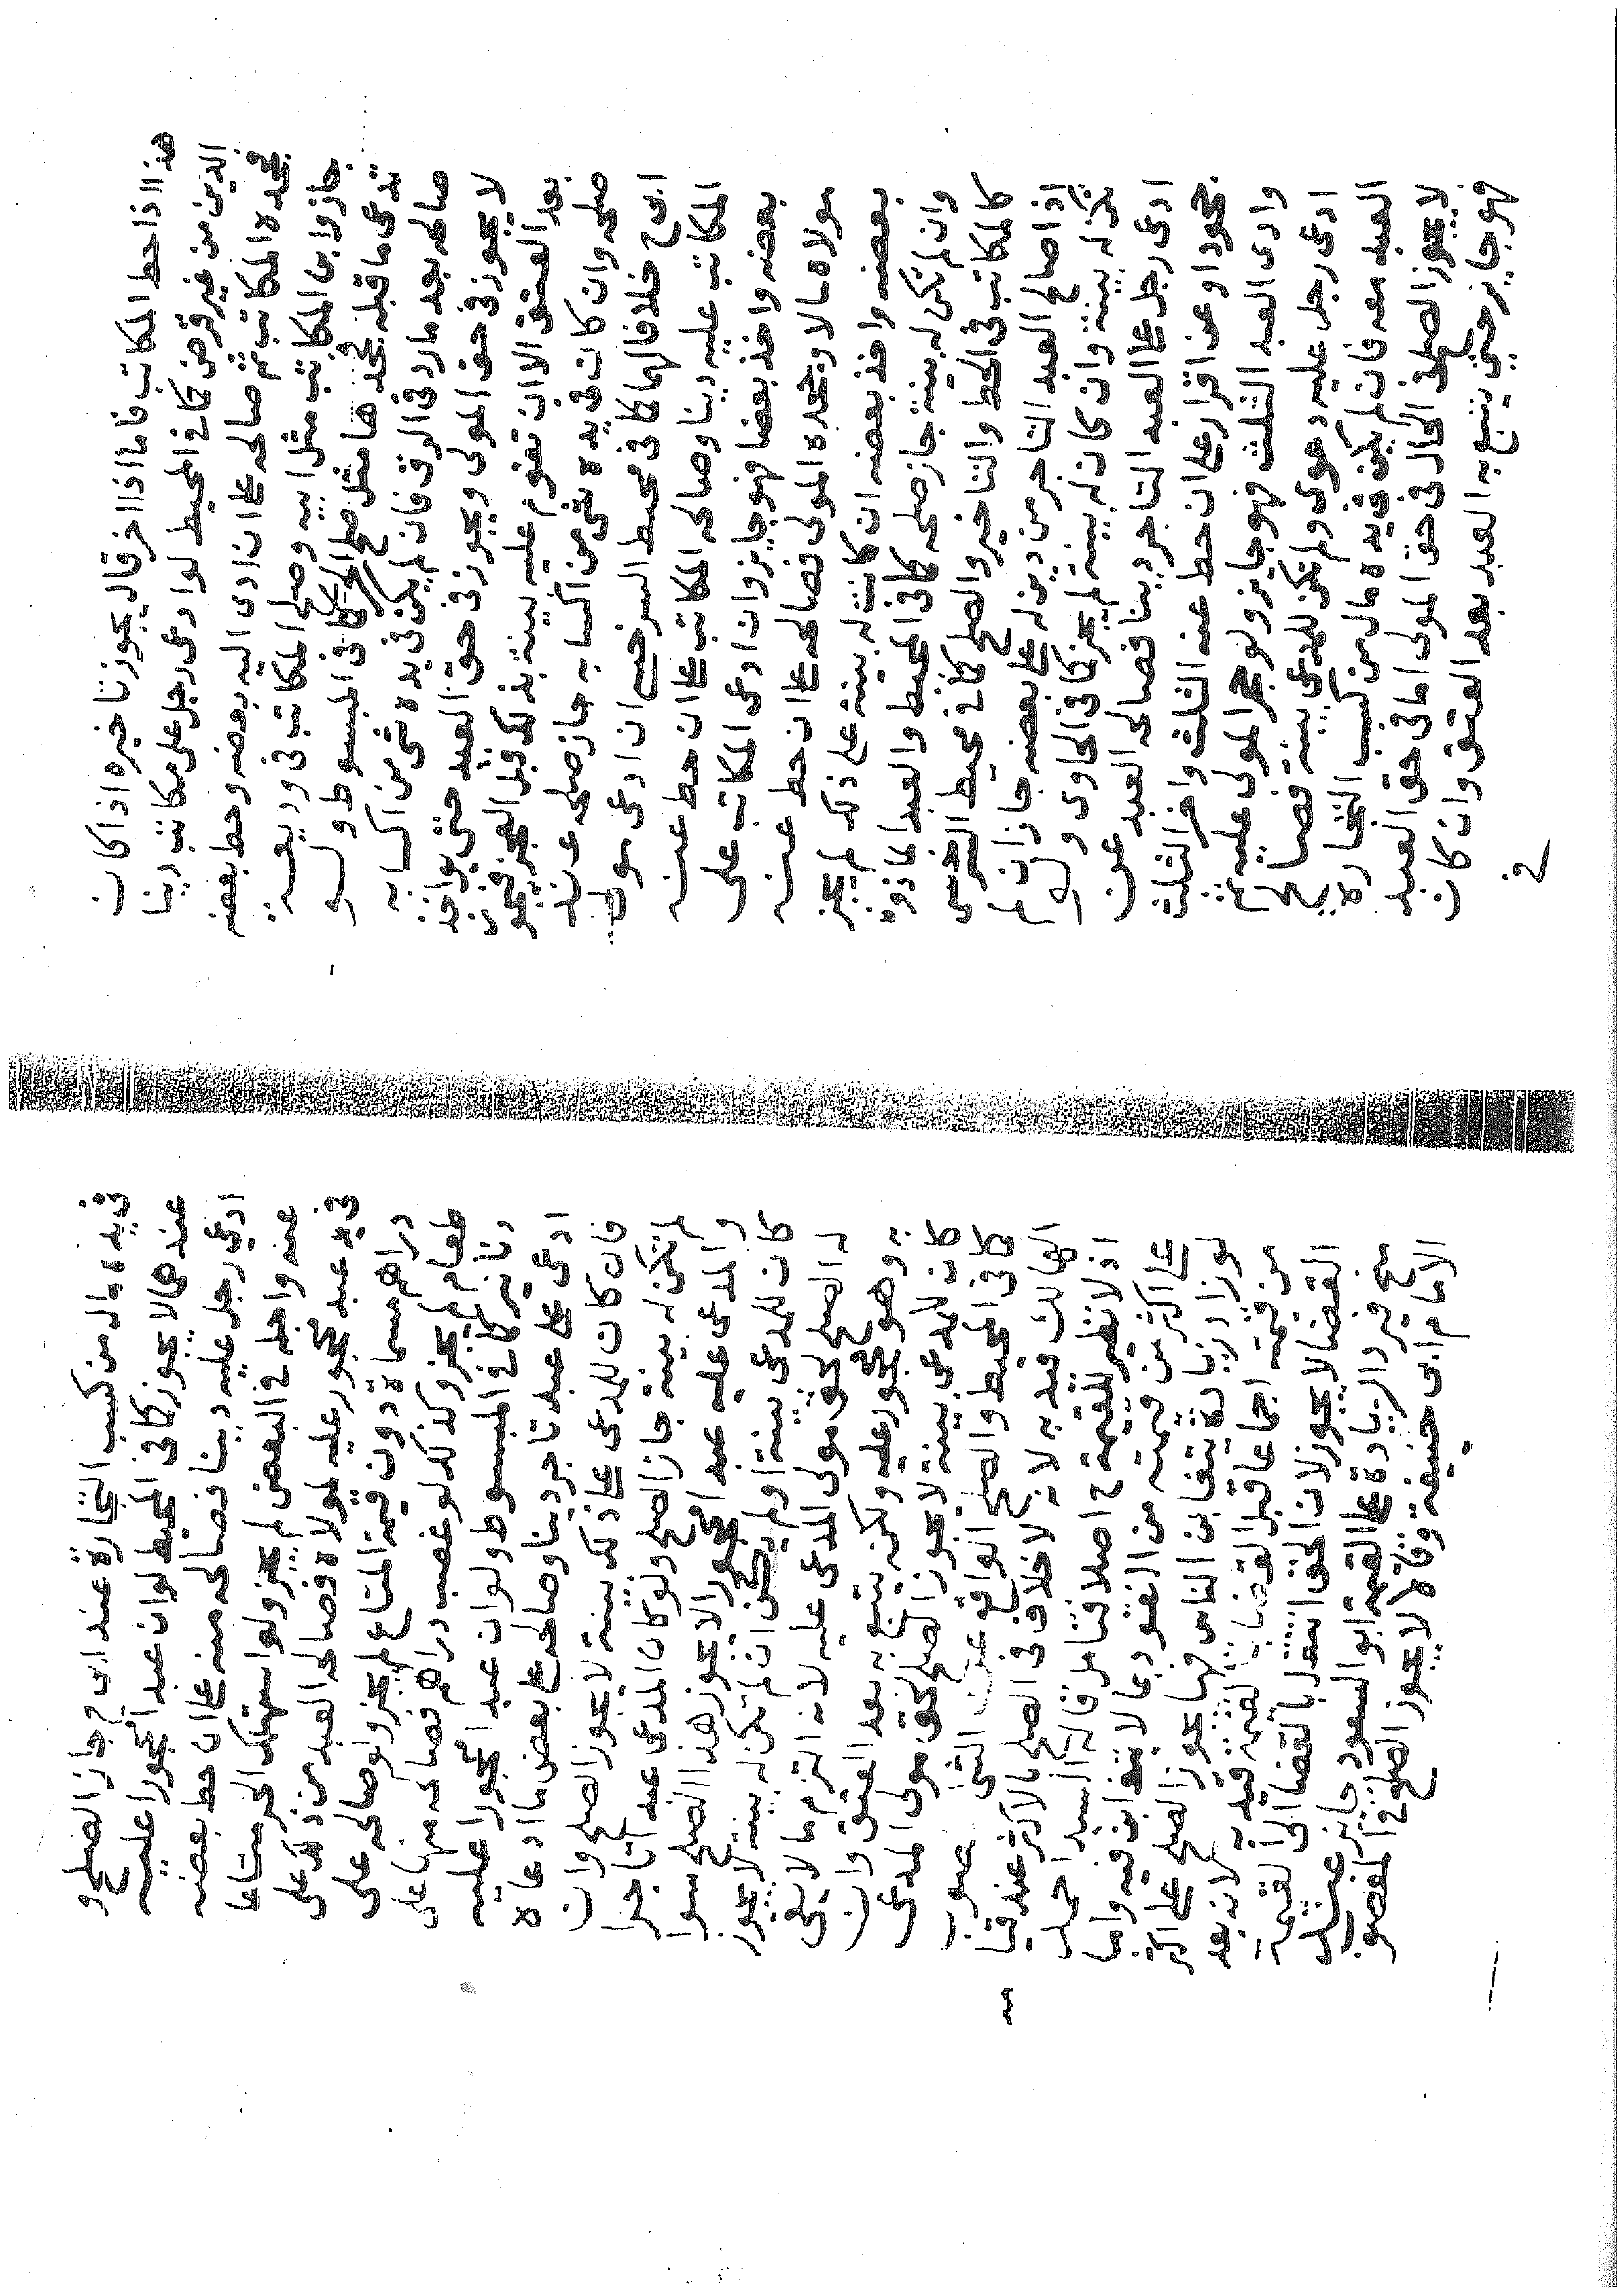 هذا اذا حط المكاتب فاما اذا اخر قال يجوز تاخيره اذا كان
الدين من غير قرض كما في المحيط لو ادعى رجل على مكاتب دينا
فجحده المكاتب ثم صالحه على ان ادى اليه بعضه وحط بعضه
جاز وابن المكاتب مثل ابيه وصلح المكاتب في وديعة
تدعى ما قبله فجحدها مثل صلح الحر كما في المبسوط ولو
صالحه بعد ما رد في الرق فان لم يكن في يده شى من اكسابه
لا يجوز في حق المولى ويجوز في حق العبد حتى يواخذ
بعد العتق الا ان تقوم عليه بينة بذلك قبل العجز فيجوز
صلحه وان كان في يده شى من اكسابه جاز صلحه عند
ابى ح خلافا لهما كما في محيط السرخسي ان ادعى مولى
المكاتب عليه دينا وصالحه المكاتب على ان حط عنه
بعضه واخذ بعضا فهو جايز وان ادعى المكاتب على
مولاه مالا وجحده المولى فصالحه على ان حط عنه
بعضه واخذ بعضه ان كانت له بينة على ذلك لم يجز
وان لم تكن له بينة جاز صلحه كما في المحيط والعبد الماذون
كالمكاتب في الحط والتاخير والصلح كما في محيط السرخسي
اذا صالح العبد التاجر من دين له على بعضه جاز ان لم
تكن له بينة وان كان له بينة لم يجز كما في الحاوى ولو
ادعى رجل على العبد التاجر دينا فصالحه العبد عن
جحود او عن اقرار على ان حط عنه الثلث واخر الثلث
وادى العبد الثلث فهو جايز ولو حجر المولى عليه ثم
ادعى رجل عليه دعوى ولم تكن للمدعى بينة فصالح
العبد معه فان لم يكن في يده مال من كسب التجارة
لا يجوز الصلح في الحال في حق المولى اما في حق العبد
فهو جايز حتى يتبع به العبد بعد العتق وان كان
في
في يده مال من كسب التجارة عند ابى ح جاز الصلح و
عندهما لا يجوز كما في المحيط لو ان عبدا محجورا عليه
ادعى رجل عليه دينا فصالحه منه على ان حط بعضه
عنه واجله في البعض لم يجز ولو استهلك الحر متاعا
في يد عبد محجور عليه لمولاه فصالحه العبد من ذلك على
دراهم مسماة دون قيمة المتاع لم يجز ولو صالحه على
طعام لم يجز وكذلك لو غصب دراهم فصالحه منها على
دنانير كما في المبسوط ولو ان عبدا محجورا عليه
ادعى على عبد تاجر دينا وصالحه على بعض ما ادعاه
فان كان للمدعى على ذلك بينة لا يجوز الصلح وان
لم تكن له بينة جاز الصلح ولو كان المدعى عبدا تاجرا
والمدعى عليه عبدا محجورا لا يجوز هذا الصلح سوا
كان للمدعى بينة او لم يكن ان لم تكن له بينة لا يجوز
له الصلح لحق مولى المدعى عليه لانه التزم ما لا يعنى
وهو محجور عليه ولكنه يتبع به بعد العتق وان
كان للمدعى بينة لا يجوز الصلح لحق مولى المدعى
كما في المحيط والصلح الواقع عن الشى
الهالك قيد به لانه لا خلاف في الصلح بالاكثر عند قيا
اذ لا نظير للقيمة ح اصلا فتامل قاله السيد احمد
على اكثر من قيمته من النقود بما لا يتغابن فيه واما
لو زاد زيادة يتغابن الناس فيها يجوز الصلح على اكثر
من قيمته اجماعا قبل القضا بالقيمة قيد به لانه بعد
القضا لا يجوز لان الحق انتقل بالقضا الى القيمة
فيرد الزيادة على القيمة ابو السعود جايز عند
الامام ابى حنيفة وقالا لا يجوز الصلح في المغصوب